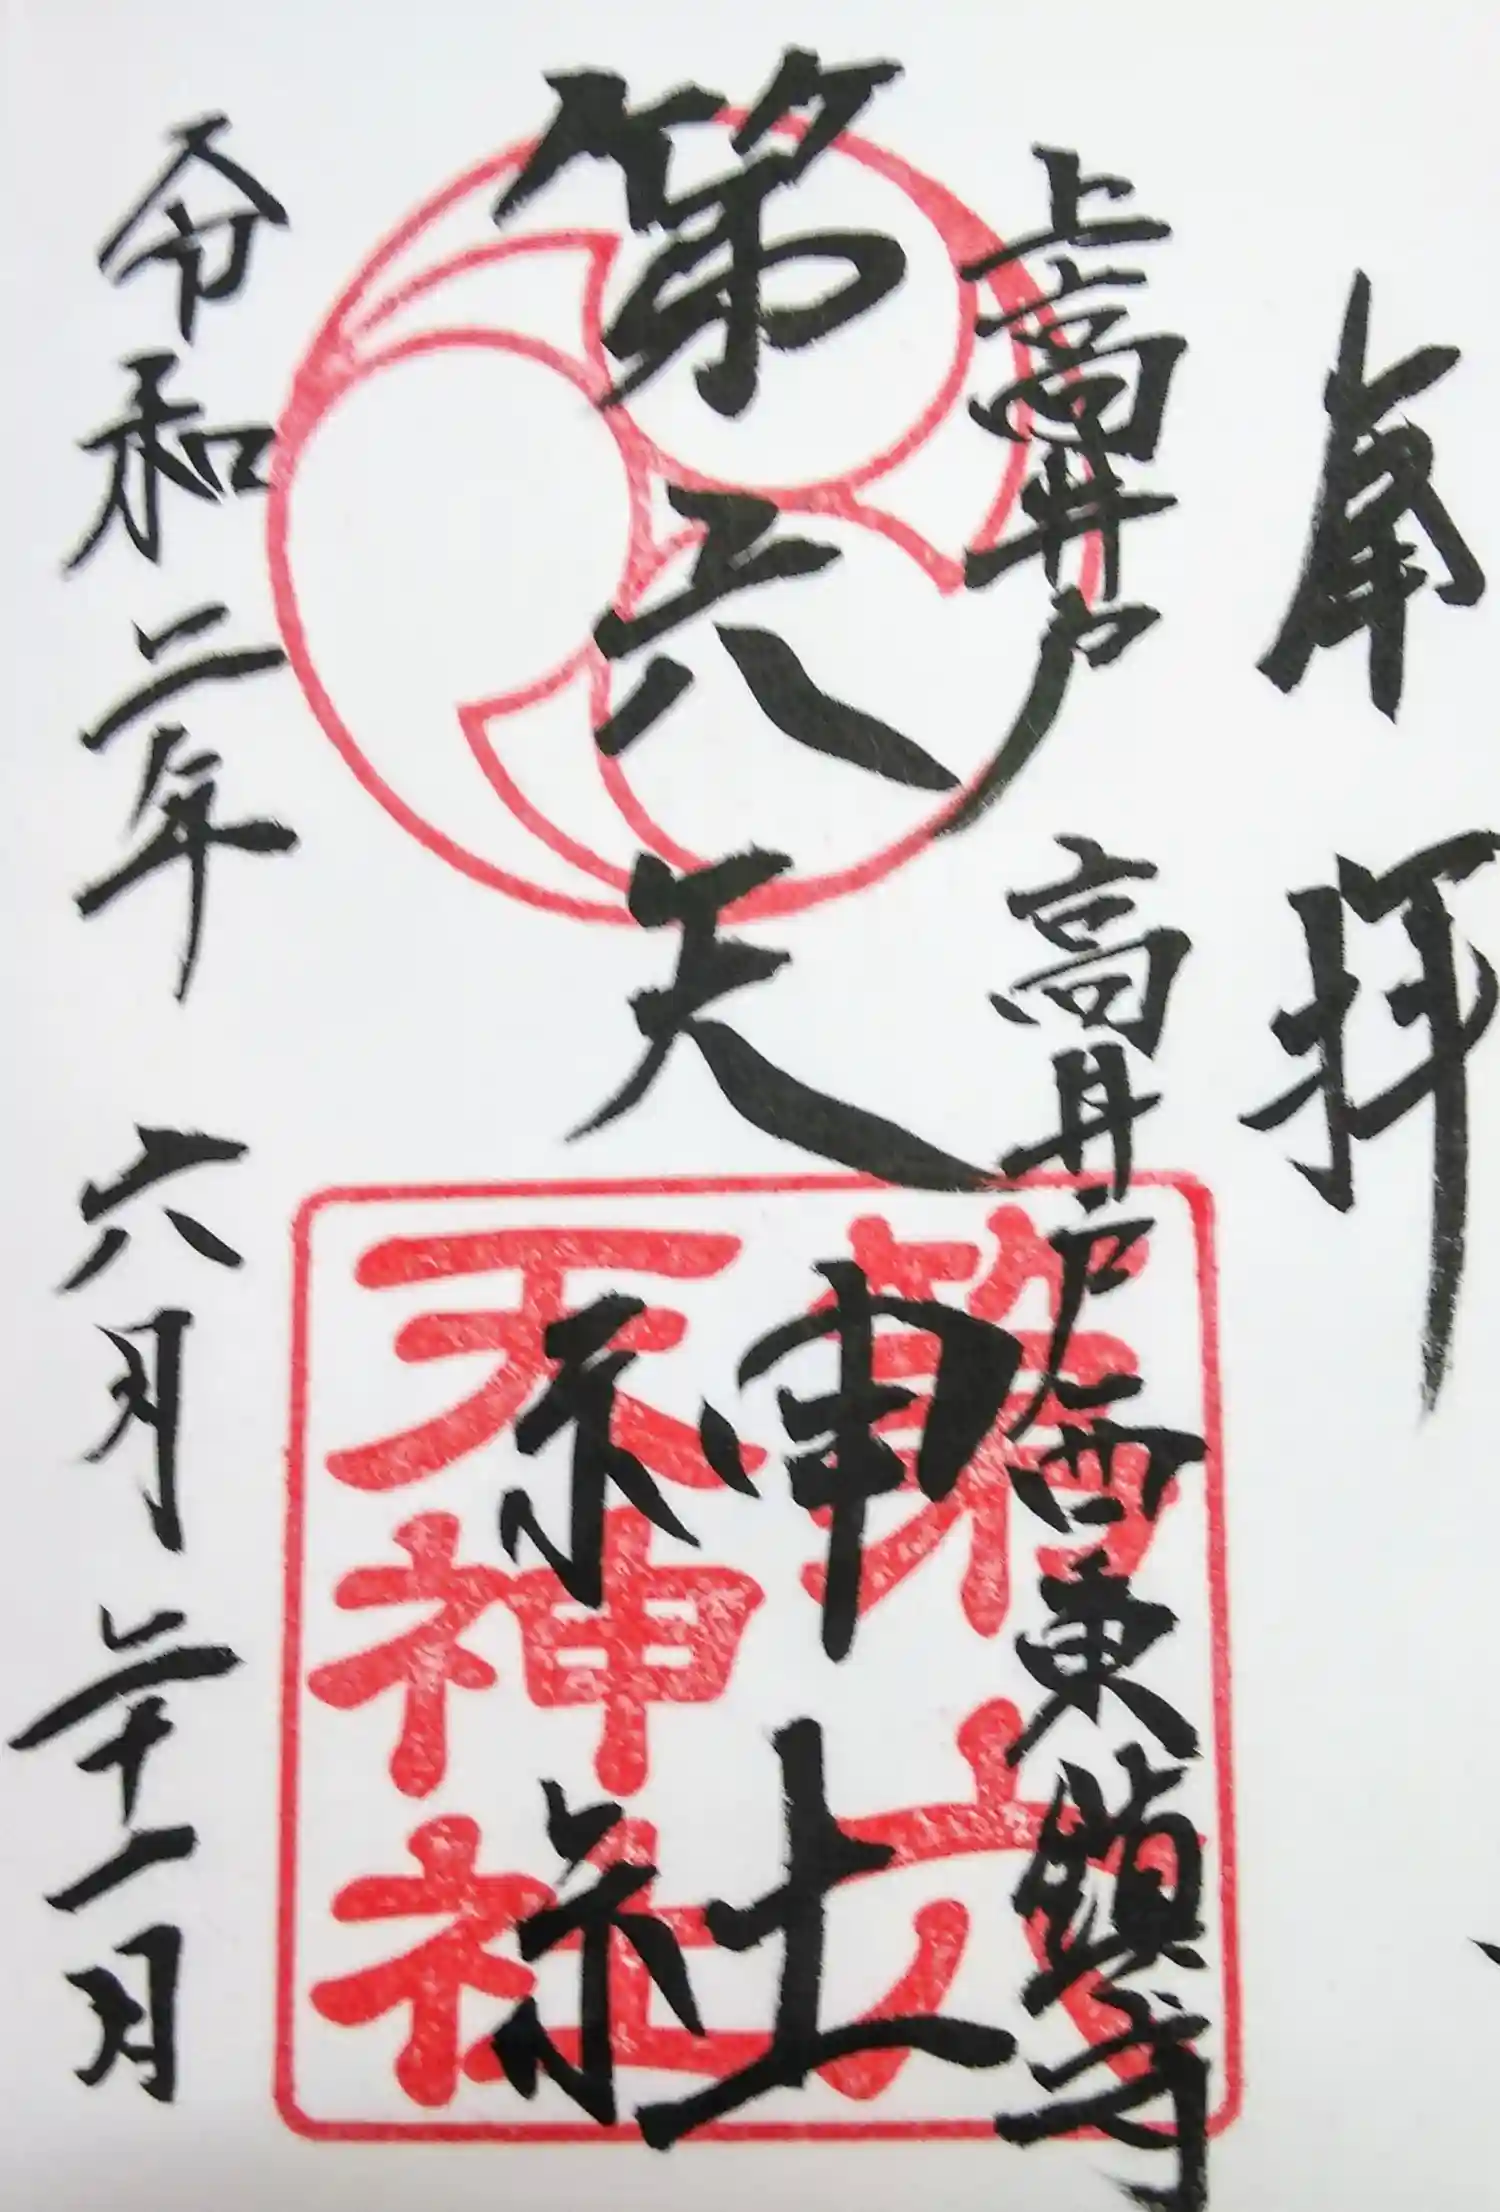 奉拝
上高井戸 高井戸西東鎮守
第六天神社
第六天神社
令和二年 六月二十一日